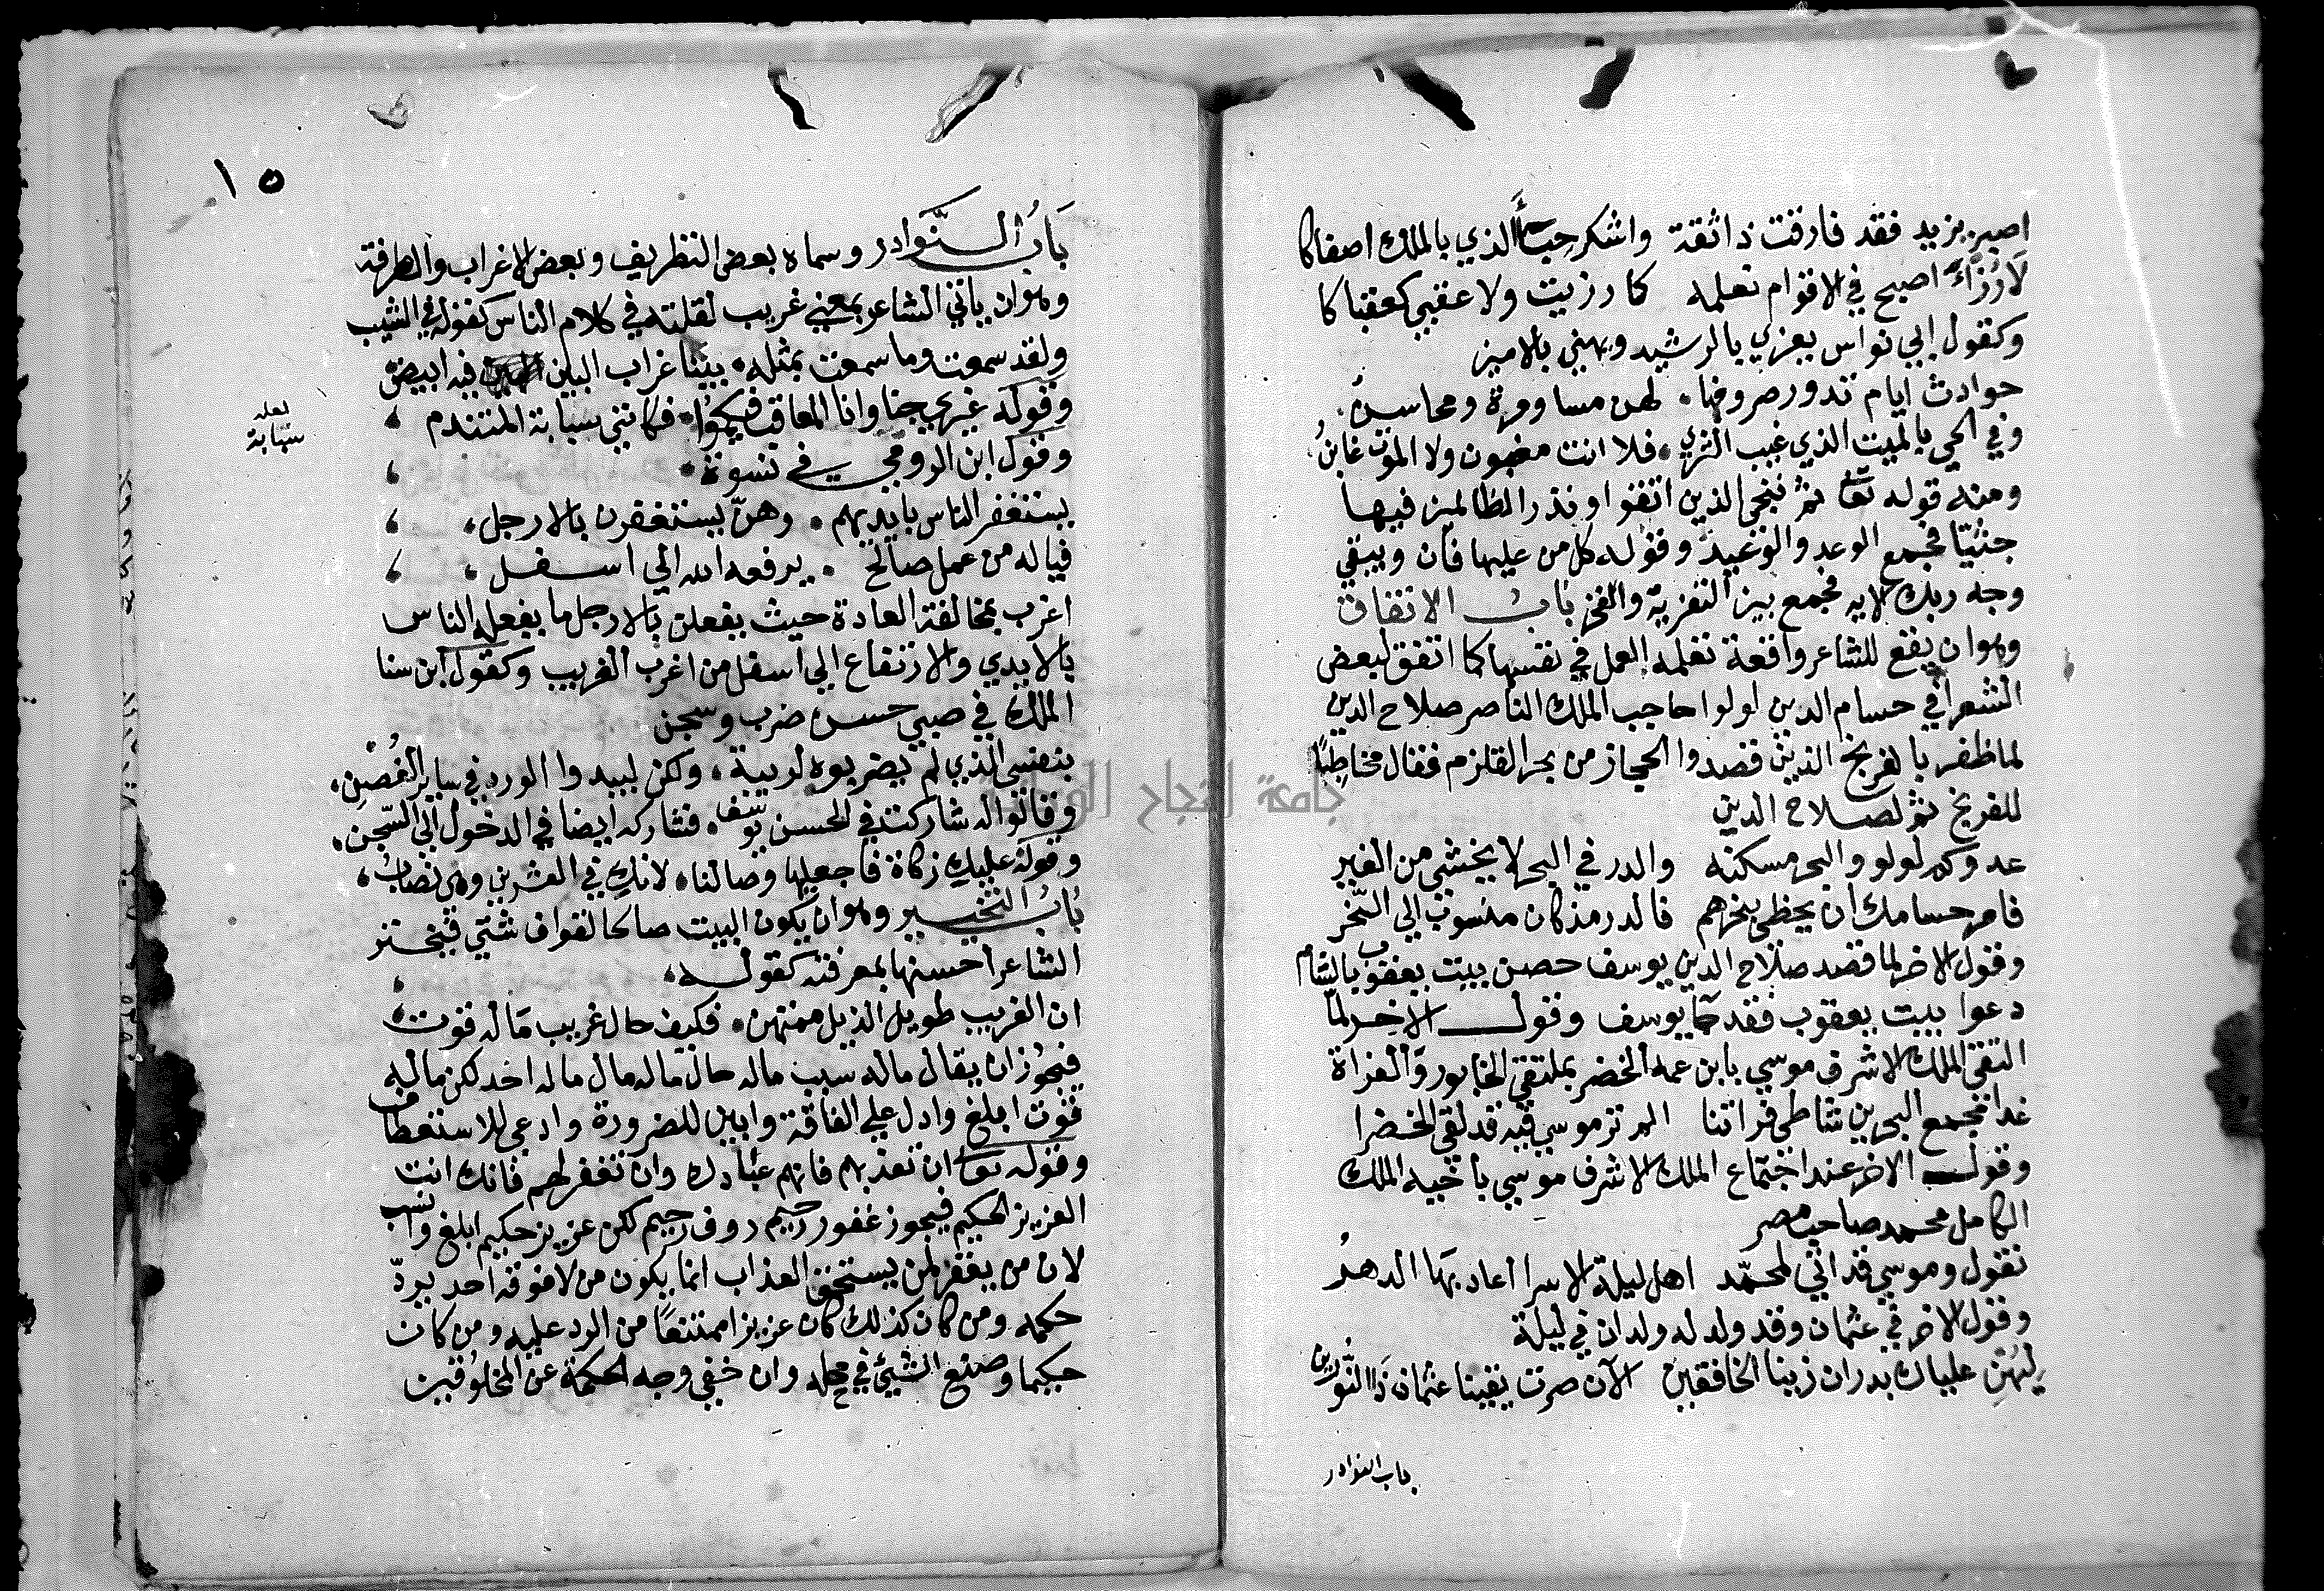 اصبر يزيد فقد فارقت ذا ثقة واشكر حباء الذي بالملك اصفاكا
لا رزاء اصبح في الاقوام نعلمه كما رزيت ولا عقبي كعقباكا
وكقول ابي نواس يعزي بالرشيد ويهني بالامين
حوادث ايام تدور صروفها لهن مساو مرة ومحاسن
وفي الحي بالميت الذي غيب الثري فلا انت مغبون ولا الموت غابن
ومنه قوله تعا ثم ننجي الذين اتقوا ونذر الظالمين فيها
جثيا فجمع الوعد والوعيد وقوله كل من عليها فان ويبقي
وجه ربك الايه فجمع بين التعزية والفخر باب الاتفاق
وهوان يقع للشاعر واقعة تعلمه العمل في نفسها كما اتفق لبعض
الشعرا في حسام الدين لولوا حاجب الملك الناصر صلاح الدين
لما ظفر بالفرنج الذين قصدوا الحجاز من بحر القلزم فقال مخاطبا
للفرنج ثم لصلاح الدين
عدوكم لولو والبحر مسكنه والدر في البحر لا يخشي من الغير
فامر حسامك ان يحظي بنحرهم فالدر مذ كان منسوب الي النحر
وقول الاخر لما قصد صلاح الدين يوسف حصن بيت يعقوب بالشام
دعوا بيت يعقوب فقد جا يوسف وقول الاخر لما
التقي الملك الاشرف موسي بابن عمه الخضر بملتقي الخابور والفراة
غدا مجمع البحرين شاطي فراتنا الم تر موسي فيه قد لقي الخضرا
وقول الاخر عند اجتماع الملك الاشرف موسي باخيه الملك
الكامل محمد صاحب مصر
نقول وموسي قد اتي لمحمد اهل ليلة الاسرا اعاد بها الدهر
وقول الاخر في عثمان وقد ولد له ولدان في ليلة
ليهن علياك بدران زينا الخافقين الآن صرت يقينا عثمان ذا النورين
باب النوادر
١٥
باب النوادر وسماه بعض التظريف وبعض الاغراب والطرفة
وهوان ياتي الشاعر بمعني غريب لقلته في كلام الناس كقوله في الشيب
ولقد سمعت وما سمعت بمثله بينا غراب البين فيه ابيض
وقوله غيري جنا وانا المعاقب فيكموا فكانني سبابة المتندم
لعله
سبابة
وقول ابن الرومي في نسوة
يستغفر الناس بايديهم وهن يستغفرن بالارجل
فياله من عمل صالح يرفعه الله الي اسفل
اغرب بمخالفة العادة حيث يفعلن بالارجل ما يفعله الناس
بالايدي والارتفاع الي اسفل من اغرب الغريب وكقول ابن سنا
الملك في صبي حسن ضرب وسجن
بنفسي الذي لم يضربوه لريبة ولكن ليبدوا الورد في ساير الغصن
وقالوا له شاركت في الحسن يوسفا فشاركه ايضا في الدخول الي السجن
وقوله عليك زكاة فاجعليها وصالنا لانك في العشرين وهي نصاب
باب التخيير وهوان يكون البيت صالحا لقواف شتي فيختر
الشاعر احسنها بمعرفته كقوله
ان الغريب طويل الذيل ممتهن فكيف حال غريب ما له قوت
فيجوز ان يقال ماله سبب ماله حال ماله مال ماله احد لكن ماله
قوت ابلغ وادل علي الفاقة وابين للضرورة وادعي للاستعطاف
وقوله تعا ان تعذبهم فانهم عبادك وان تغفر لهم فانك انت
العزيز الحكيم فيجوز غفور رحيم روف رحيم لكن عزيز حكيم ابلغ وانسب
لان من يغفر لمن يستحق العذاب انما يكون من لا فوقه احد يرد
حكمه ومن كان كذلك كان عزيزا ممتنعا من الرد عليه ومن كان
حكيما وضع الشيئ في محله وان خفي وجه الحكمة عن المخلوقين
جامعة النجاح الوطنية